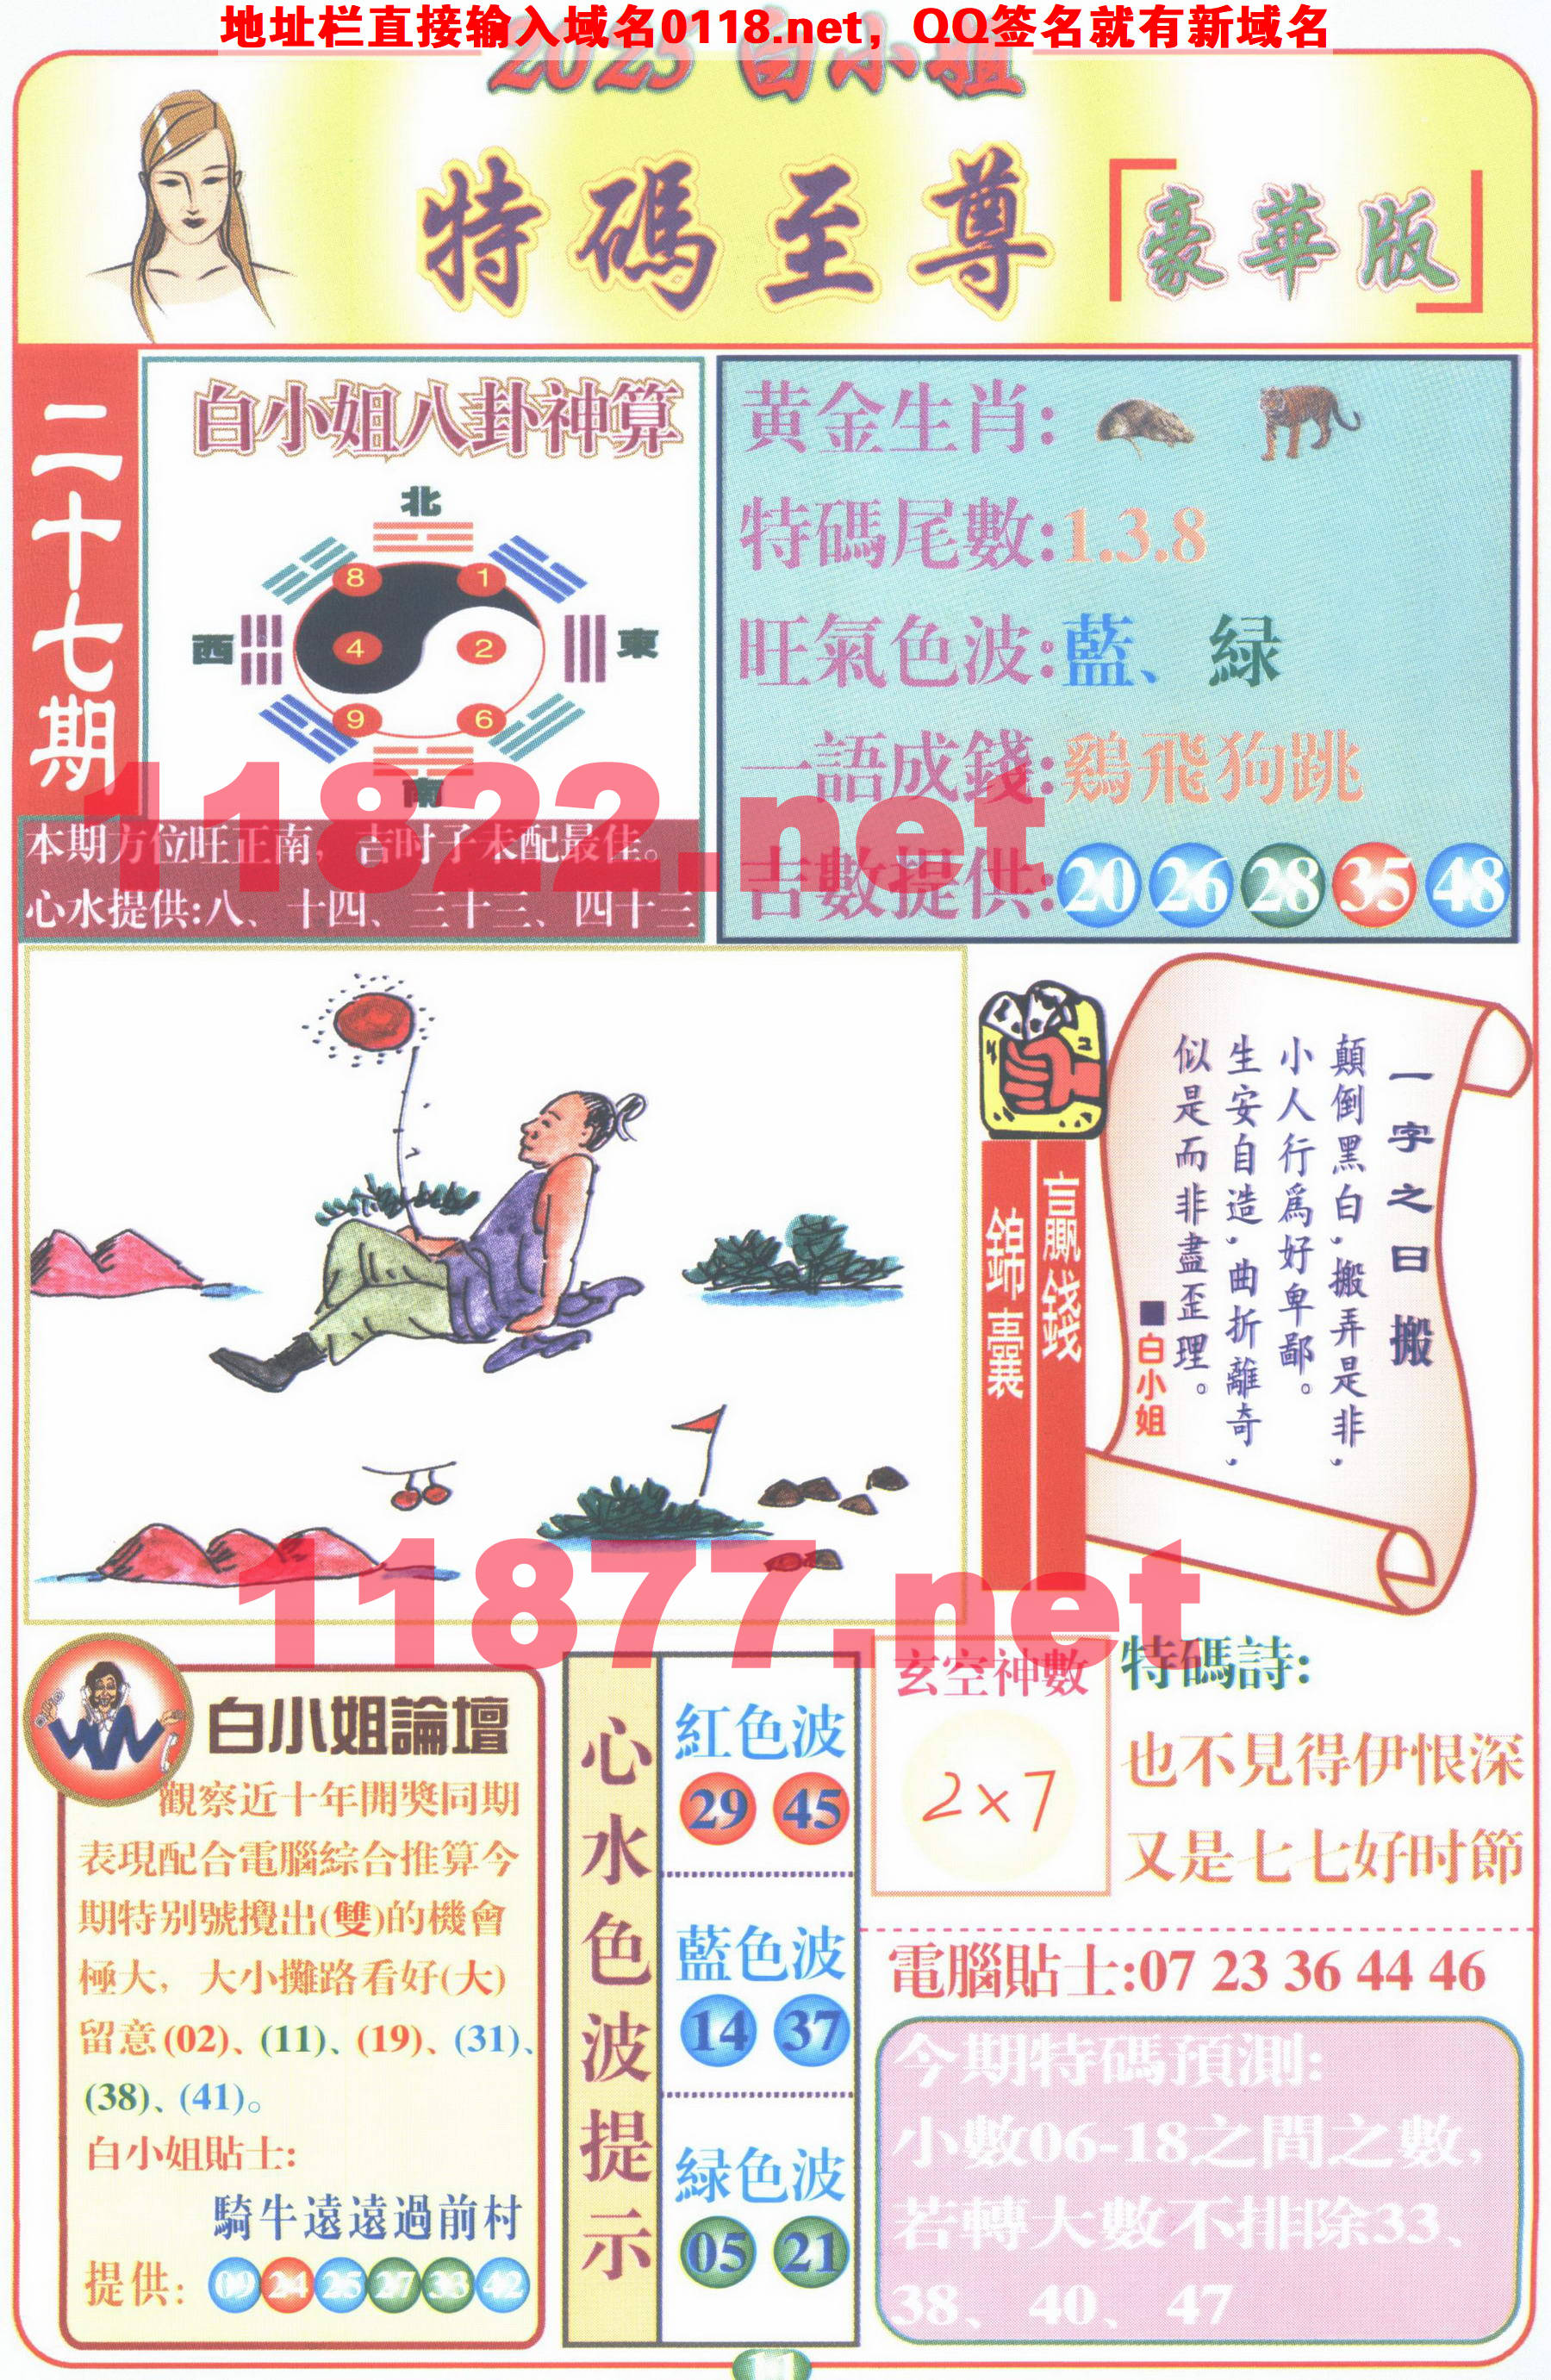 地址栏直接输入域名0118.net，QQ签名就有新域名
2025 白小姐
特碼至尊「豪華版」
二十七期
白小姐八卦神算
北
8 1
西 4 2 東
9 6
南
本期方位旺正南，吉时子未配最佳。
心水提供:八、十四、三十三、四十三
黄金生肖:
特碼尾數:1.3.8
旺氣色波:藍、緑
一語成錢:鷄飛狗跳
吉數提供:20 26 28 35 48
11822.net
贏錢
錦囊
一字之曰 搬
顛倒黑白,搬弄是非,
小人行爲好卑鄙。
生安自造,曲折離奇,
似是而非盡歪理。
■白小姐
11877.net
白小姐論壇
觀察近十年開獎同期
表現配合電腦綜合推算今
期特别號攪出(雙)的機會
極大，大小攤路看好(大)
留意(02)、(11)、(19)、(31)、
(38)、(41)。
白小姐貼士:
騎牛遠遠過前村
提供: 09 24 25 27 33 42
心水色波提示
紅色波
29 45
藍色波
14 37
緑色波
05 21
玄空神數
2×7
特碼詩:
也不見得伊恨深
又是七七好时節
電腦貼士:07 23 36 44 46
今期特碼預測:
小數06-18之間之數,
若轉大數不排除33、
38、40、47